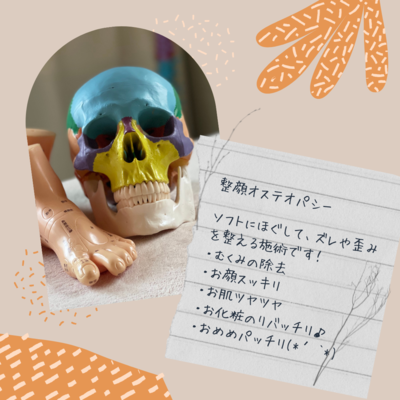 整顔オステオパシー
ソフトにほぐして、ズレや歪み
を整える施術です!
・むくみの除去
・お顔スッキリ
・お肌ツヤツヤ
・お化粧のリバッチリ♪
・おめめパッチリ(*´｀*)